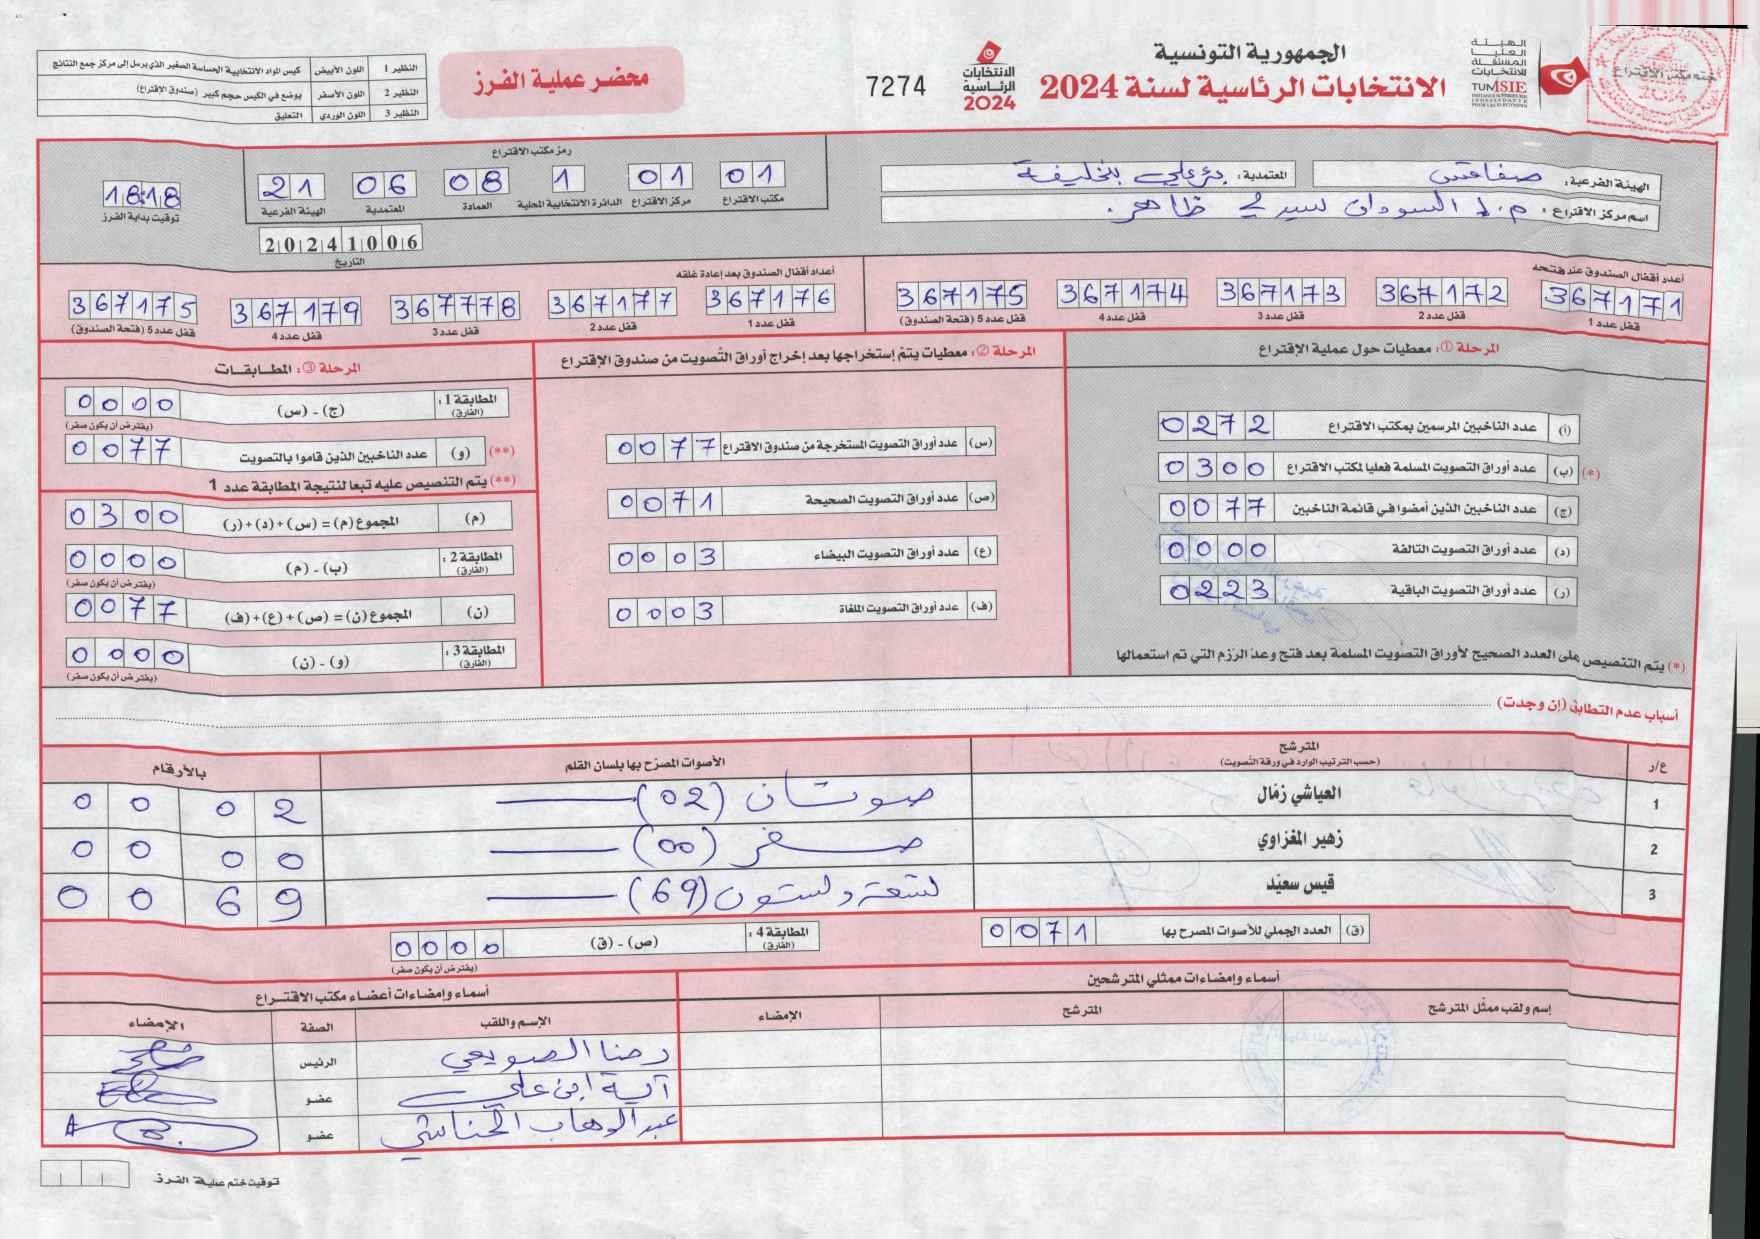 الجمهورية التونسية
الانتخابات الرئاسية لسنة 2024
الهيئة العليا المستقلة للانتخابات
TUNISIE
الانتخابات الرئاسية 2024
7274
محضر عملية الفرز
النظير 1 اللون الأبيض كيس المواد الانتخابية الحساسة الصغير الذي يرسل إلى مركز جمع النتائج
النظير 2 اللون الأصفر يوضع في الكيس حجم كبير (صندوق الاقتراع)
النظير 3 اللون الوردي التعليق
الهيئة الفرعية: صفاقس المعتمدية: بئر علي بنخليفة
اسم مركز الاقتراع: م.إ السودان سيدي ظاهر.
رمز مكتب الاقتراع
01 01 1 08 06 21
مكتب الاقتراع مركز الاقتراع الدائرة الانتخابية المحلية العمادة المعتمدية الهيئة الفرعية
20241006
التاريخ
18:18
توقيت بداية الفرز
أعدد أقفال الصندوق عند فتحه
367171 367172 367173 367174 367175
قفل عدد 1 قفل عدد 2 قفل عدد 3 قفل عدد 4 قفل عدد 5 (فتحة الصندوق)
أعداد أقفال الصندوق بعد إعادة غلقه
367176 367177 367778 367179 367175
قفل عدد 1 قفل عدد 2 قفل عدد 3 قفل عدد 4 قفل عدد 5 (فتحة الصندوق)
المرحلة ①: معطيات حول عملية الاقتراع
(أ) عدد الناخبين المرسمين بمكتب الاقتراع 0272
(*) (ب) عدد أوراق التصويت المسلمة فعليا لمكتب الاقتراع 0300
(ج) عدد الناخبين الذين أمضوا في قائمة الناخبين 0077
(د) عدد أوراق التصويت التالفة 0000
(ر) عدد أوراق التصويت الباقية 0223
(*) يتم التنصيص على العدد الصحيح لأوراق التصويت المسلمة بعد فتح وعد الرزم التي تم استعمالها
المرحلة ②: معطيات يتم إستخراجها بعد إخراج أوراق التصويت من صندوق الإقتراع
(س) عدد أوراق التصويت المستخرجة من صندوق الاقتراع 0077
(ص) عدد أوراق التصويت الصحيحة 0071
(ع) عدد أوراق التصويت البيضاء 0003
(ف) عدد أوراق التصويت الملغاة 0003
المرحلة ③: المطابقات
المطابقة 1: (الفارق) (ج) - (س) 0000
(يفترض أن يكون صفر)
(**) (و) عدد الناخبين الذين قاموا بالتصويت 0077
(**) يتم التنصيص عليه تبعا لنتيجة المطابقة عدد 1
(م) المجموع (م) = (س) + (د) + (ر) 0300
المطابقة 2: (الفارق) (ب) - (م) 0000
(يفترض أن يكون صفر)
(ن) المجموع (ن) = (ص) + (ع) + (ف) 0077
المطابقة 3: (الفارق) (و) - (ن) 0000
(يفترض أن يكون صفر)
أسباب عدم التطابق (إن وجدت)
ع/ر المترشح (حسب الترتيب الوارد في ورقة التصويت) الأصوات المصرح بها بلسان القلم بالأرقام
1 العياشي زمال صوتان (02) 0002
2 زهير المغزاوي صفر (00) 0000
3 قيس سعيد تسعة وستون (69) 0069
(ق) العدد الجملي للأصوات المصرح بها 0071
المطابقة 4: (الفارق) (ص) - (ق) 0000
(يفترض أن يكون صفر)
أسماء وإمضاءات ممثلي المترشحين
إسم ولقب ممثل المترشح المترشح الإمضاء
أسماء وإمضاءات أعضاء مكتب الاقتراع
الإسم واللقب الصفة الإمضاء
رضا الصويعي الرئيس
آية ابن علي عضو
عبد الوهاب الحناشي عضو
توقيت ختم عملية الفرز